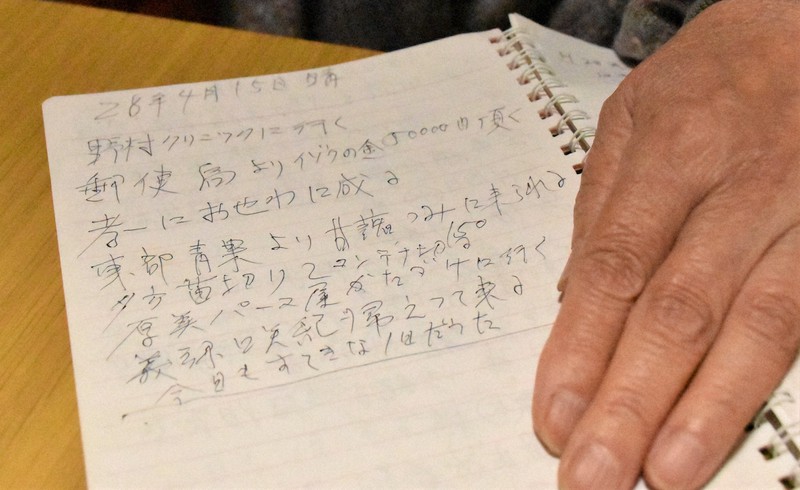 28年4月15日 晴
野村クリニックに行く
郵便局よりイゾクの金50000円頂く
孝一におせわに成る
東部青果より甘藷つみに来られる
夕方苗切り2コンテナ切る
厚美パース屋かたずけに行く
美紀帰えって来る
今日もすてきな1日だった